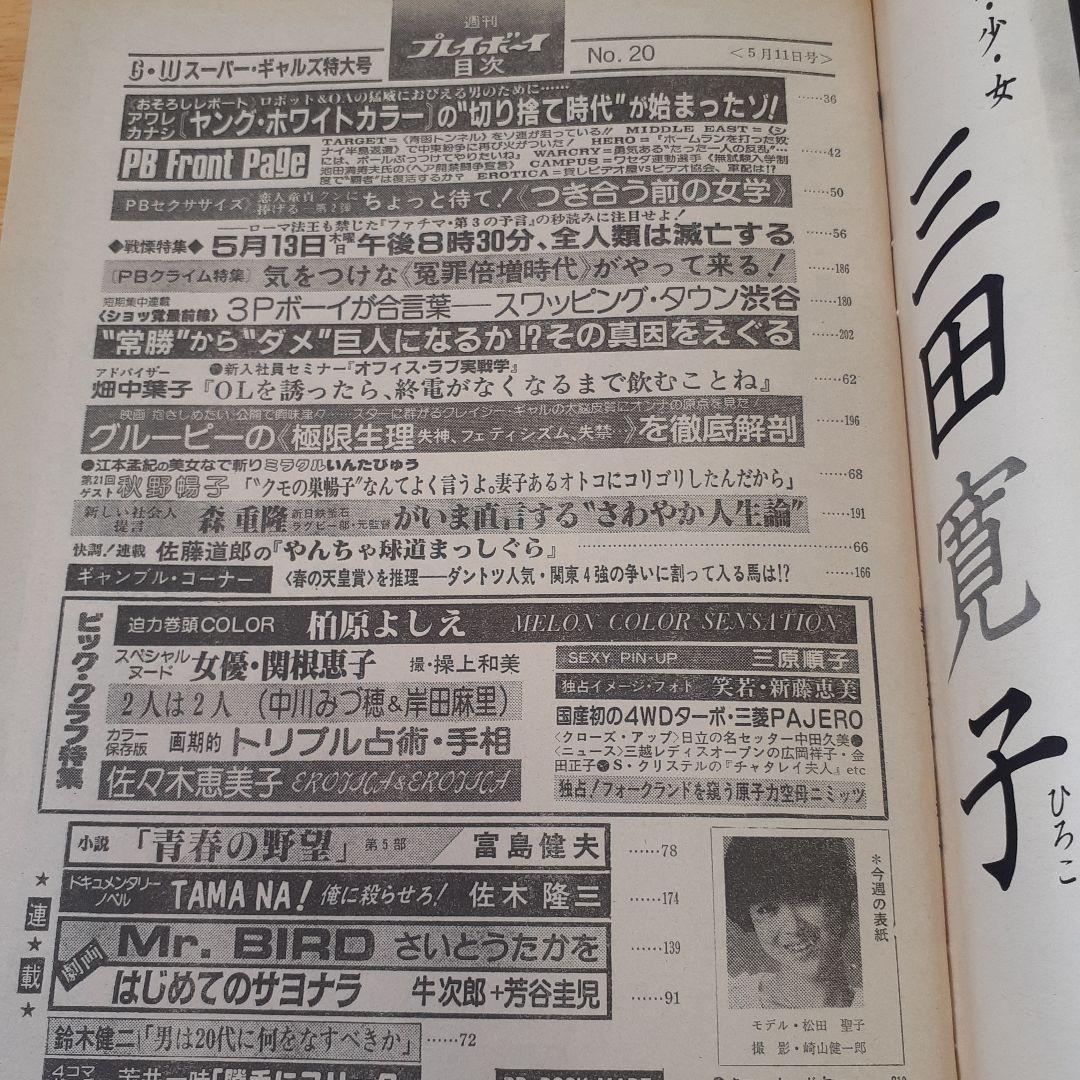 週刊
プレイボーイ
目次
G・Wスーパー・ギャルズ特大号
No. 20
＜5月11日号＞
《おそろしレポート》ロボット&OAの猛威におびえる男のために……
アワレ
カナシ
〔ヤング・ホワイトカラー〕の“切り捨て時代”が始まったゾ！……36
PB Front Page
TARGET=《青函トンネル》をソ連が狙っている!! MIDDLE EAST=《シ
ナイ半島返還》で中東紛争に再び火がついた! HERO=『ホームランを打った奴
には、ボールぶっつけてやりたいね』 WARCRY=勇気ある“たった一人の反乱”…
池田満寿夫氏の《ヘア開禁闘争宣言》 CAMPUS=ワセダ運動選手《無試験入学制
度で“覇者”は復活するか? EROTICA=貸しビデオ屋VSビデオ協会、軍配は!?
……42
PBセクササイズ
ちょっと待て！《つき合う前の女学》……50
――ローマ法王も禁じた『ファチマ・第3の予言』の秒読みに注目せよ！
◆戦慄特集◆ 5月13日木曜日午後8時30分、全人類は滅亡する……56
〔PBクライム特集〕 気をつけな《冤罪倍増時代》がやって来る！……186
短期集中連載
〈ショッ党最前線〉 3Pボーイが合言葉――スワッピング・タウン渋谷……180
“常勝”から“ダメ”巨人になるか!?その真因をえぐる……202
●新入社員セミナー『オフィス・ラブ実戦学』
アドバイザー
畑中葉子『OLを誘ったら、終電がなくなるまで飲むことね』……62
映画“抱きしめたい”公開で興味津々……スターに群がるクレイジー・ギャルの大脳皮質にオンナの原点を見た！
グルーピーの《極限生理 失神、フェティシズム、失禁》を徹底解剖……196
●江本孟紀の美女なで斬りミラクルいんたびゅう
第21回
ゲスト 秋野暢子「“クモの巣暢子”なんてよく言うよ。妻子あるオトコにコリゴリしたんだから」……68
新しい社会人
提言 森 重隆 新日鉄釜石
ラグビー部・元監督 がいま直言する“さわやか人生論”……191
快調！連載 佐藤道郎の『やんちゃ球道まっしぐら』……66
ギャンブル・コーナー 〈春の天皇賞〉を推理――ダントツ人気・関東4強の争いに割って入る馬は!?……166
ビッグ・グラフ特集
迫力巻頭COLOR 柏原よしえ MELON COLOR SENSATION
スペシャル
ヌード 女優・関根恵子 撮・操上和美
2人は2人 (中川みづ穂&岸田麻里)
カラー
保存版 画期的トリプル占術・手相
佐々木恵美子 EROTICA&EROTICA
SEXY PIN-UP 三原順子
独占イメージ・フォト 笑若・新藤恵美
国産初の4WDターボ・三菱PAJERO
〈クローズ・アップ〉日立の名セッター中田久美●
〈ニュース〉三越レディスオープンの広岡祥子・金
田正子●S・クリステルの『チャタレイ夫人』etc
独占！フォークランドを窺う原子力空母ニミッツ
★連★載★
小説 「青春の野望」 第5部 富島健夫……78
ドキュメンタリー
ノベル TAMA NA! 俺に殺らせろ！ 佐木隆三……174
劇画
Mr. BIRD さいとうたかを……139
はじめてのサヨナラ 牛次郎+芳谷圭児……91
鈴木健二「男は20代に何をなすべきか」……72
4コマ
＊今週の表紙
モデル・松田 聖子
撮 影・崎山健一郎
・少・女
三田寛子
ひろこ